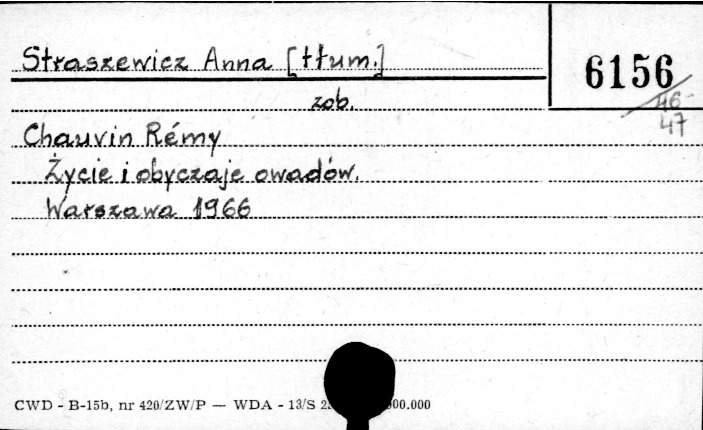 Straszewicz Anna [tłum.]
6156
46-
47
zob.
Chauvin Rémy
Życie i obyczaje owadów.
Warszawa 1966
CWD - B-15b, nr 420/ZW/P — WDA - 13/S 00.000